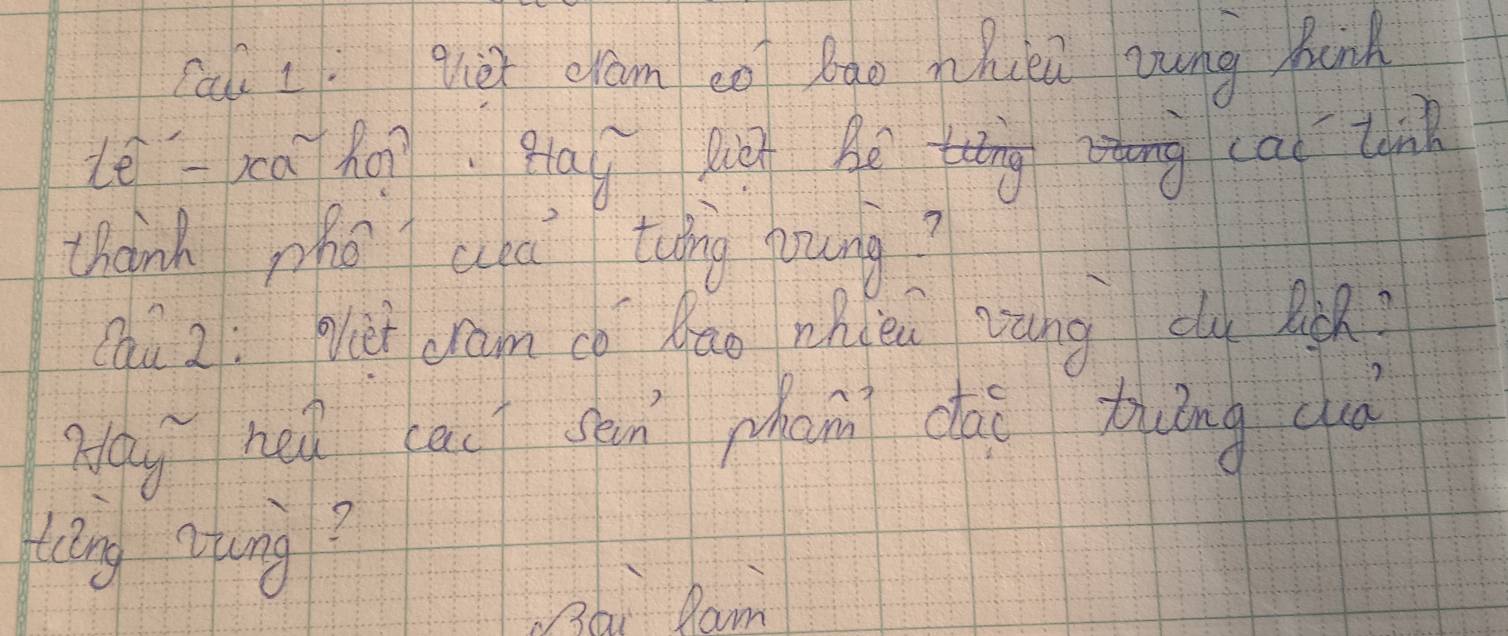 Câu 1: Việt Nam có bao nhiêu vùng kinh
tế - xã hội. Hãy liệt kê từng vùng các tỉnh
thành phố của từng vùng?
Câu 2: Việt Nam có bao nhiêu vùng du lịch?
Hãy nêu các sản phẩm đặc trưng của
từng vùng?
Bài làm